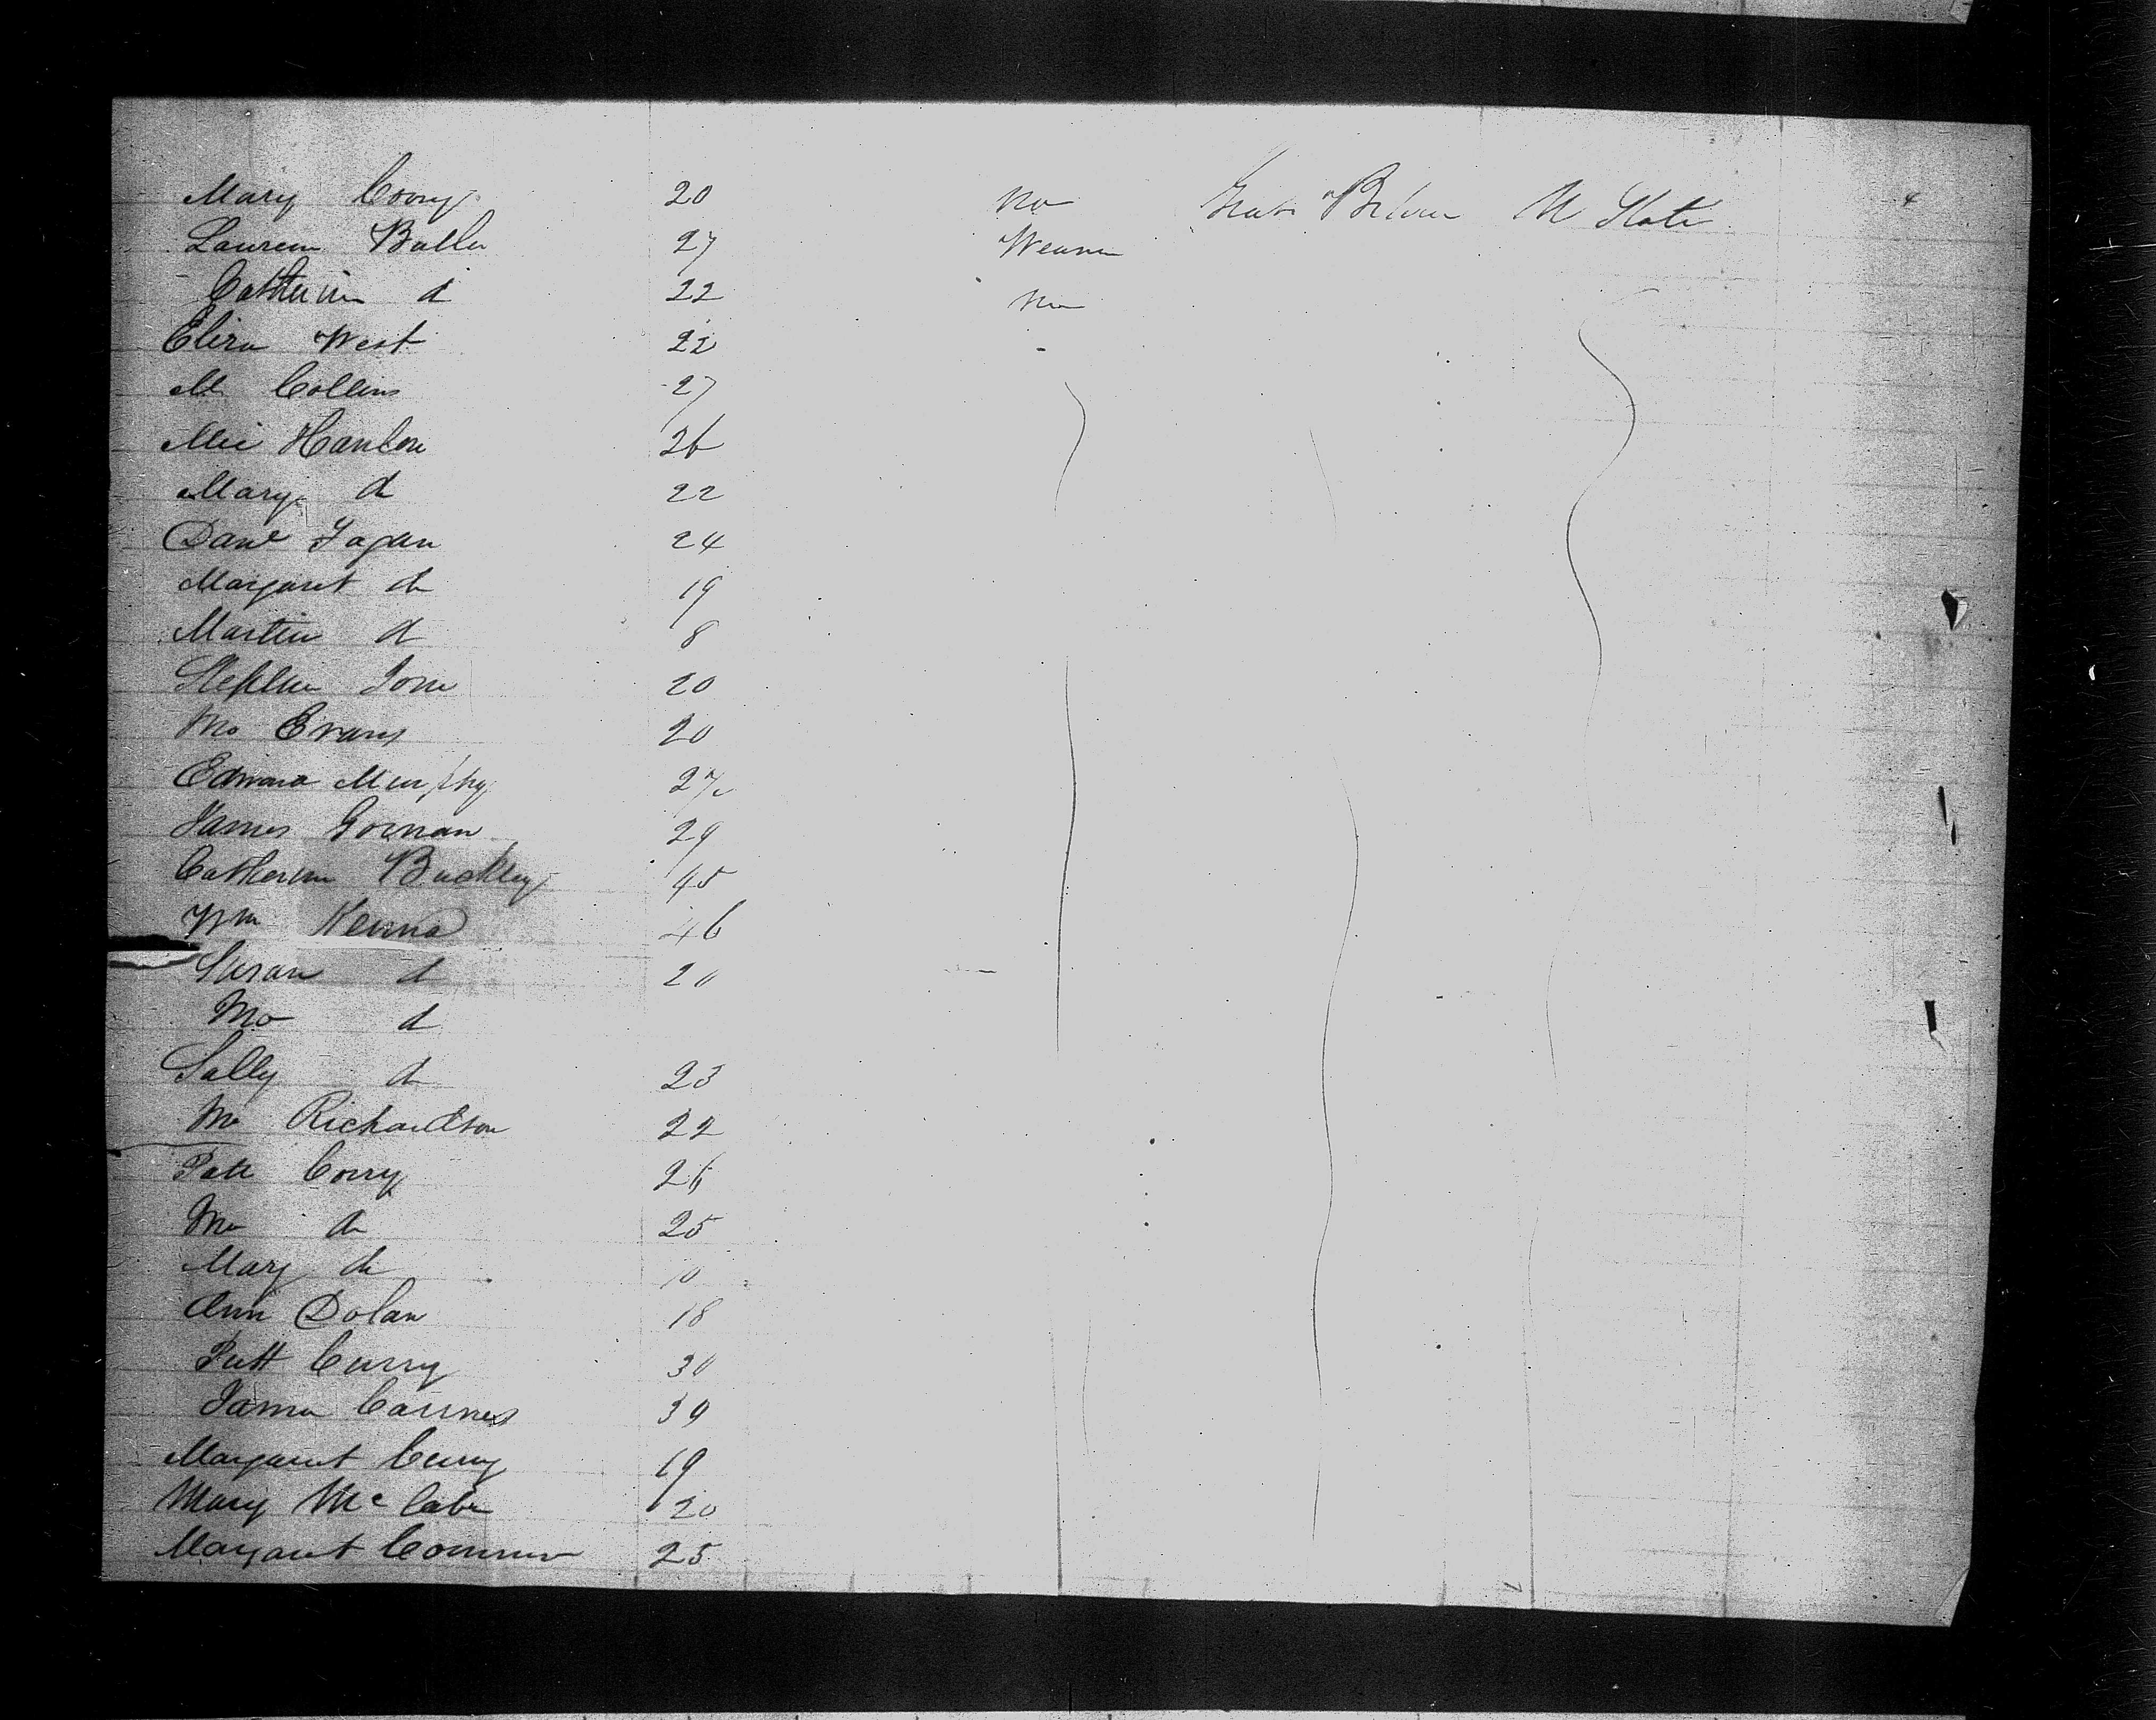 Mary Corry 20 no Great Britain U States 4
Lauren Butler 27 Weaver
Catherin d 22 no
Eliza West 22
M Collins 27
Mic Hanlon 26
Mary d 22
Danl Fagan 24
Margaret do 19
Martin d 8
Stephen 20
Mo Evans 20
Edward Murphy 27
James Gornan 29
Catherin Buckley 45
Wm Kenna 46
Susan d 20
Mo d
Sally do 23
Mo Richardson 22
Patt Corry 26
Mo do 25
Mary do 10
Ann Dolan 18
Patt Curry 30
James Cairnes 39
Margaret Curry 19
Mary McCabe 20
Margaret Connor 25